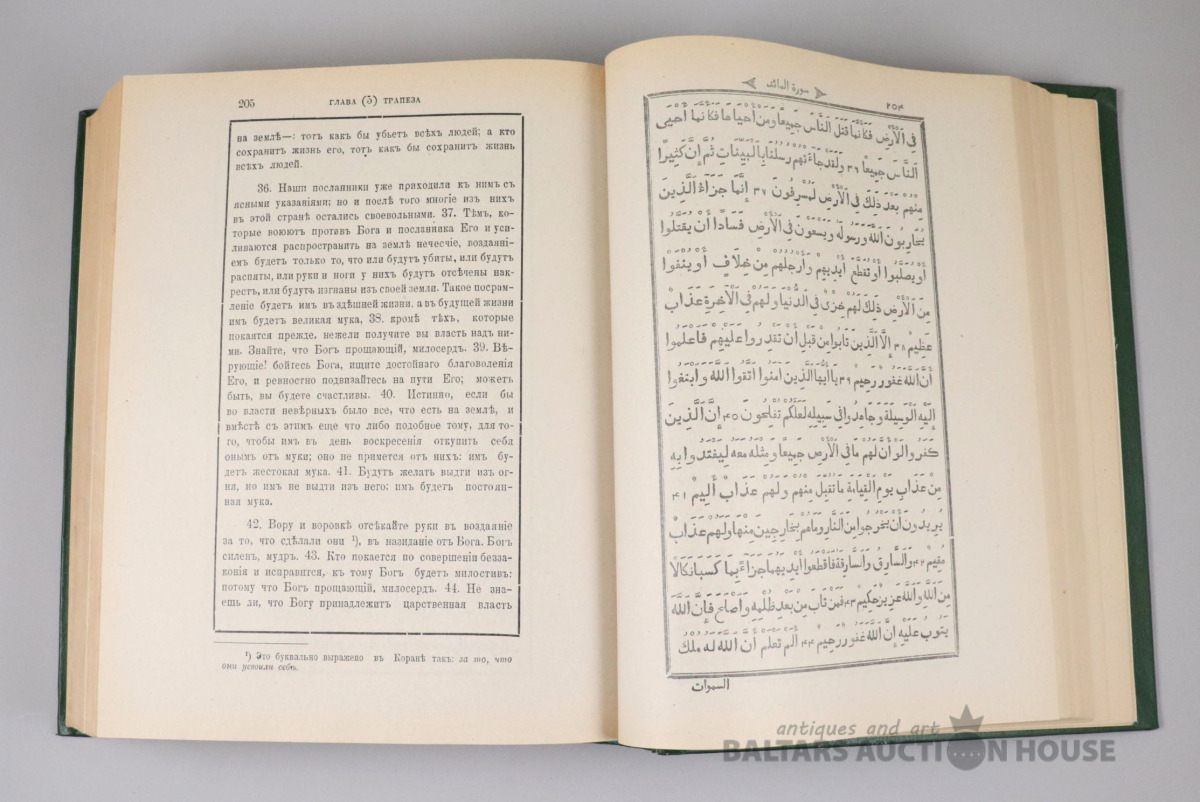 205
ГЛАВА (5) ТРАПЕЗА
на землѣ—: тотъ какъ бы убьетъ всѣхъ людей; а кто
сохранитъ жизнь его, тотъ какъ бы сохранитъ жизнь
всѣхъ людей.
36. Наши посланники уже приходили къ нимъ съ
ясными указаніями; но и послѣ того многіе изъ нихъ
въ этой странѣ остались своевольными. 37. Тѣмъ, ко-
торые воюютъ противъ Бога и посланника Его и уси-
ливаются распространить на землѣ нечестіе, воздаяні-
емъ будетъ только то, что или будутъ убиты, или будутъ
распяты, или руки и ноги у нихъ будутъ отсѣчены нак-
рестъ, или будутъ изгнаны изъ своей земли. Такое посрам-
леніе будетъ имъ въ здѣшней жизни, а въ будущей жизни
имъ будетъ великая мука, 38. кромѣ тѣхъ, которые
покаятся прежде, нежели получите вы власть надъ ни-
ми. Знайте, что Богъ прощающій, милосердъ. 39. Вѣ-
рующіе! бойтесь Бога, ищите достойнаго благоволенія
Его, и ревностно подвизайтесь на пути Его; можетъ
быть, вы будете счастливы. 40. Истинно, если бы
во власти невѣрныхъ было все, что есть на землѣ, и
вмѣстѣ съ этимъ еще что либо подобное тому, для то-
го, чтобы имъ въ день воскресенія откупить себя
онымъ отъ муки; оно не примется отъ нихъ: имъ бу-
детъ жестокая мука. 41. Будутъ желать выдти изъ ог-
ня, но имъ не выдти изъ него: имъ будетъ постоян-
ная мука.
42. Вору и воровкѣ отсѣкайте руки въ воздаяніе
за то, что сдѣлали они ¹), въ назиданіе отъ Бога. Богъ
силенъ, мудръ. 43. Кто покается по совершеніи безза-
конія и исправится, къ тому Богъ будетъ милостивъ:
потому что Богъ прощающій, милосердъ. 44. Не зна-
ешь ли, что Богу принадлежитъ царственная власть
¹) Это буквально выражено въ Коранѣ такъ: за то, что
они усвоили себѣ.
سورة المائد
٢٥٤
فِي الْأَرْضِ فَكَأَنَّمَا قَتَلَ النَّاسَ جَمِيعًا وَمَنْ أَحْيَاهَا فَكَأَنَّمَا أَحْيَى
النَّاسَ جَمِيعًا ٣٦ وَلَقَدْ جَاءَتْهُمْ رُسُلُنَا بِالْبَيِّنَاتِ ثُمَّ إِنَّ كَثِيرًا
مِنْهُمْ بَعْدَ ذَلِكَ فِي الْأَرْضِ لَمُسْرِفُونَ ٣٧ إِنَّمَا جَزَاءُ الَّذِينَ
يُحَارِبُونَ اللَّهَ وَرَسُولَهُ وَيَسْعَوْنَ فِي الْأَرْضِ فَسَادًا أَنْ يُقَتَّلُوا
أَوْ يُصَلَّبُوا أَوْ تُقَطَّعَ أَيْدِيهِمْ وَأَرْجُلُهُمْ مِنْ خِلَافٍ أَوْ يُنْفَوْا
مِنَ الْأَرْضِ ذَلِكَ لَهُمْ خِزْيٌ فِي الدُّنْيَا وَلَهُمْ فِي الْآخِرَةِ عَذَابٌ
عَظِيمٌ ٣٨ إِلَّا الَّذِينَ تَابُوا مِنْ قَبْلِ أَنْ تَقْدِرُوا عَلَيْهِمْ فَاعْلَمُوا
أَنَّ اللَّهَ غَفُورٌ رَحِيمٌ ٣٩ يَا أَيُّهَا الَّذِينَ آمَنُوا اتَّقُوا اللَّهَ وَابْتَغُوا
إِلَيْهِ الْوَسِيلَةَ وَجَاهِدُوا فِي سَبِيلِهِ لَعَلَّكُمْ تُفْلِحُونَ ٤٠ إِنَّ الَّذِينَ
كَفَرُوا لَوْ أَنَّ لَهُمْ مَا فِي الْأَرْضِ جَمِيعًا وَمِثْلَهُ مَعَهُ لِيَفْتَدُوا بِهِ
مِنْ عَذَابِ يَوْمِ الْقِيَامَةِ مَا تُقُبِّلَ مِنْهُمْ وَلَهُمْ عَذَابٌ أَلِيمٌ ٤١
يُرِيدُونَ أَنْ يَخْرُجُوا مِنَ النَّارِ وَمَا هُمْ بِخَارِجِينَ مِنْهَا وَلَهُمْ عَذَابٌ
مُقِيمٌ ٤٢ وَالسَّارِقُ وَالسَّارِقَةُ فَاقْطَعُوا أَيْدِيَهُمَا جَزَاءً بِمَا كَسَبَا نَكَالًا
مِنَ اللَّهِ وَاللَّهُ عَزِيزٌ حَكِيمٌ ٤٣ فَمَنْ تَابَ مِنْ بَعْدِ ظُلْمِهِ وَأَصْلَحَ فَإِنَّ اللَّهَ
يَتُوبُ عَلَيْهِ إِنَّ اللَّهَ غَفُورٌ رَحِيمٌ ٤٤ أَلَمْ تَعْلَمْ أَنَّ اللَّهَ لَهُ مُلْكُ
السموات
antiques and art
BALTARS AUCTION HOUSE